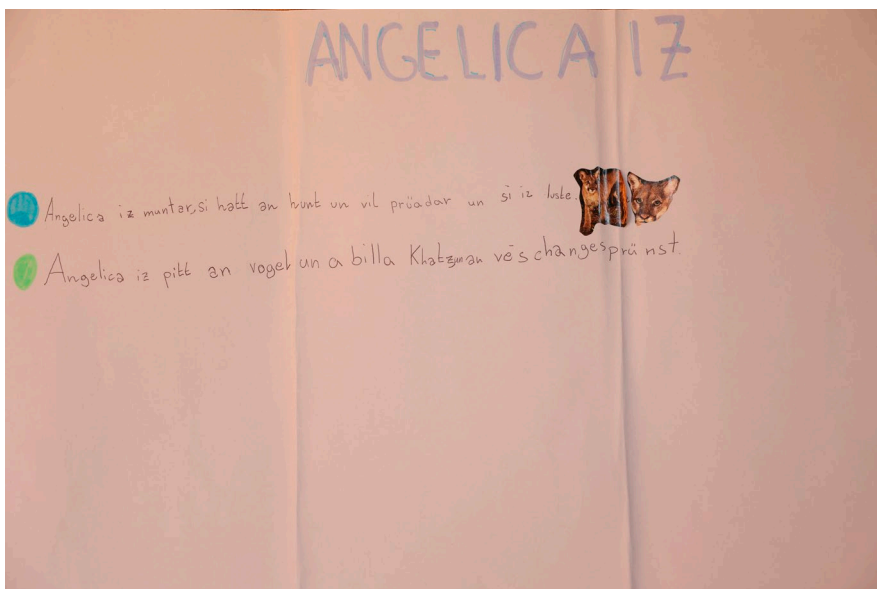 ANGELICA IZ
Angelica iz muntar, si hatt an hunt un vil prüadar un si iz luste.
Angelica iz pitt an vogel un a billa Khatz un an vēschangesprünst.